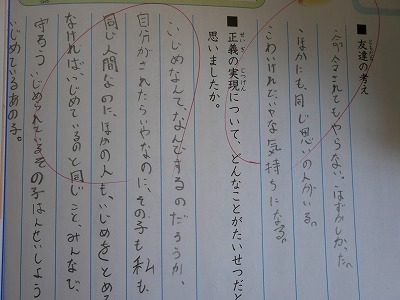 ■友達の考え
ともだち
命令されてもやらない。はずかしかった。
ほかにも、同じ思いの人がいる。
こわいけれど、いやな気持ちになる。
■正義の実現について、どんなことがたいせつだと
せいぎ じつげん
思いましたか。
いじめなんて、なんでするのだろうか、
自分がされたらいやなのに、その子も私も、
同じ人間なのに、ほかの人も、いじめをとめ
なければ、いじめているのと同じこと、みんなで、
守ろう いじめられているその子 はんせいしよう
いじめているあの子。